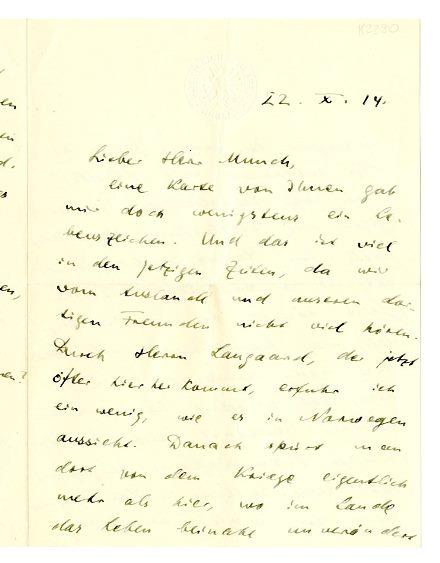 K2280
22. X. 14.
Lieber Herr Munch,
eine Karte von Ihnen gab
mir doch wenigstens ein Le-
benszeichen. Und das ist viel
in den jetzigen Zeiten, da wir
vom Auslande und unseren dor-
tigen Freunden nicht viel hören.
Durch Herrn Langaard, der jetzt
öfter hierher kommt, erfuhr ich
ein wenig, wie es in Norwegen
aussieht. Danach spürt man
dort von dem Kriege eigentlich
mehr als hier, wo im Lande
das Leben beinahe unverändert